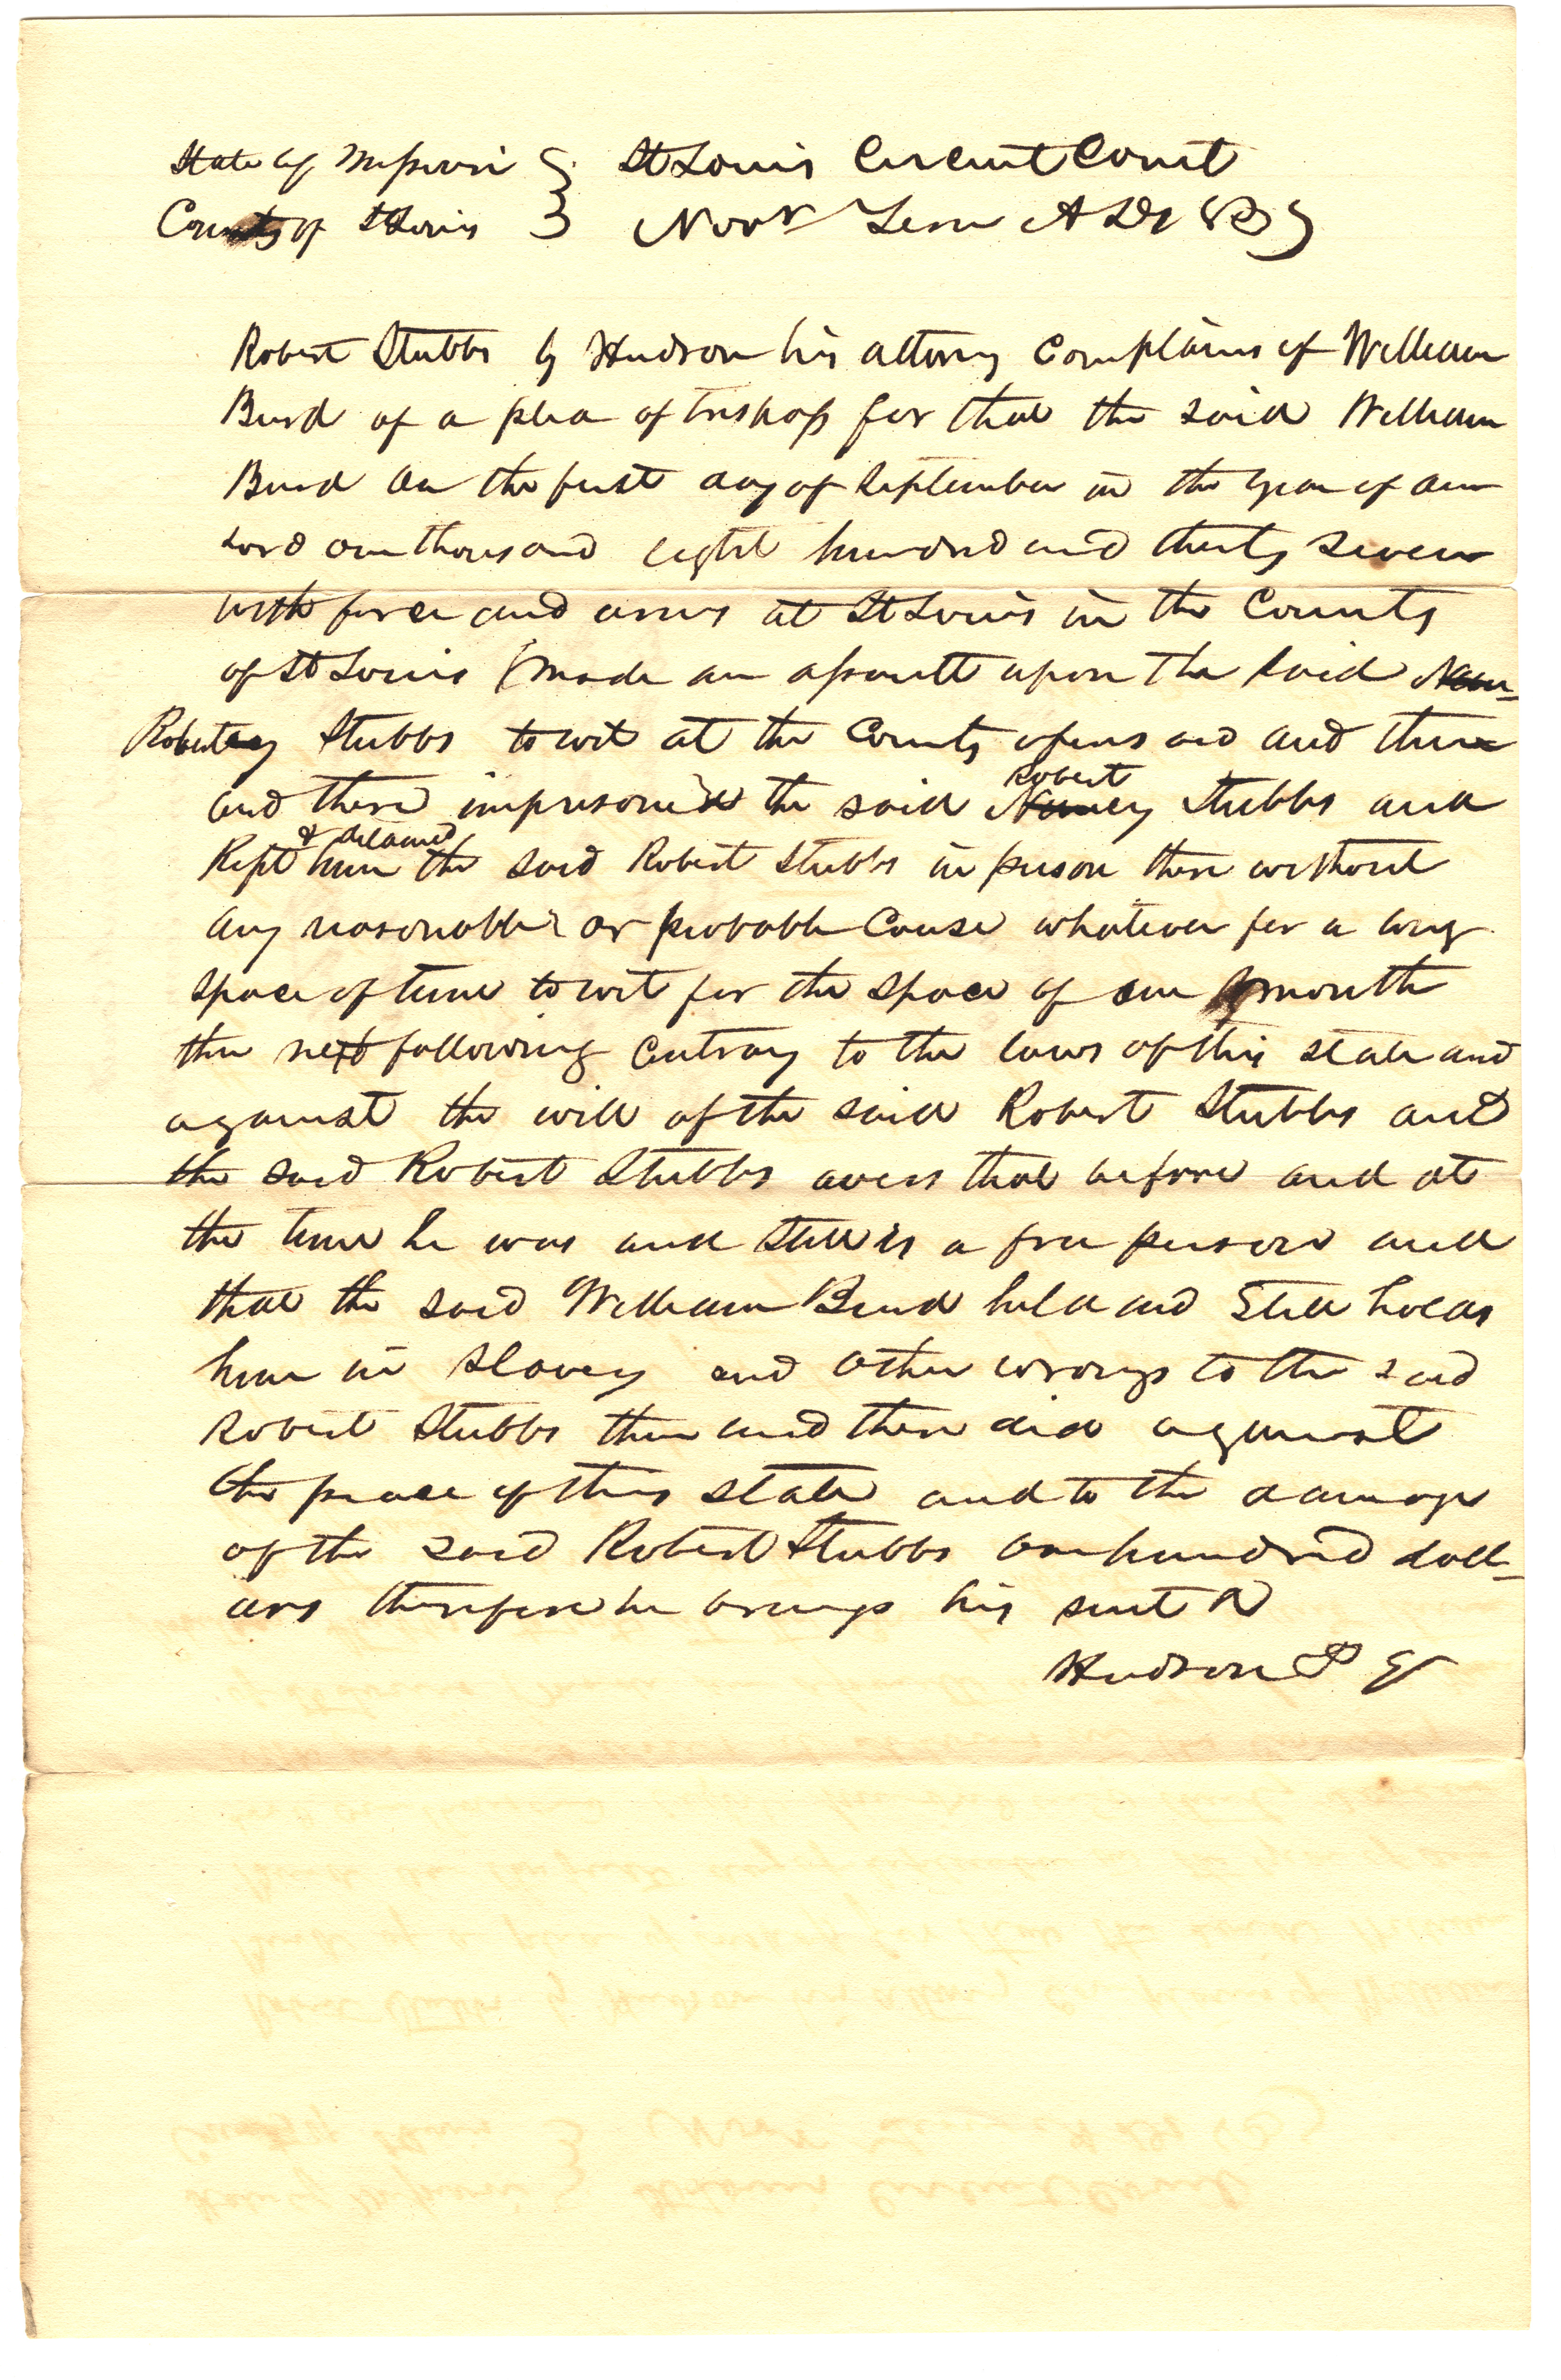 State of Missouri } St Louis Circuit Court
County of St Louis } Novr Term AD 1837
Robert Stubbs by Hudson his attorny Complains of William
Burd of a plea of trespass for that the said William
Burd on the first day of September in the year of our
Lord one thousand eight hundred and thirty seven
with force and arms at St Louis in the County
of St Louis (made an assault upon the said Nan-
Robert cy Stubbs to wit at the County aforesaid and then
and there imprisoned the said Nancy Robert Stubbs and
Kept & detained him the said Robert Stubbs in prison there without
any reasonable or probable Cause whatever for a long
space of time to wit for the space of one month
then next following Contrary to the laws of this state and
against the will of the said Robert Stubbs and
the said Robert Stubbs avers that before and at
the time he was and still is a free person and
that the said William Burd held and still holds
him in slavery and other wrongs to the said
Robert Stubbs then and there did against
the peace of this state and to the damage
of the said Robert Stubbs one hundred doll-
ars therefore he brings his suit &
Hudson P Q